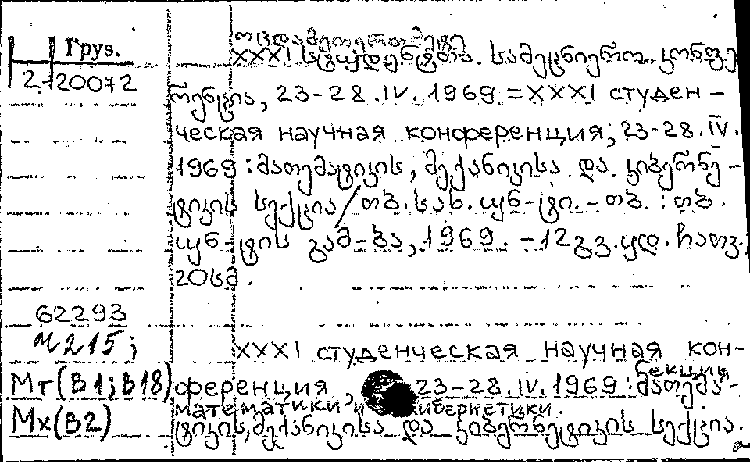 Груз.
2-20072
ოცდამეთერთმეტე
XXXI სტუდენტთა. სამეცნიერო. კონფე
რენცია, 23-28.IV.1969.=XXXI студен-
ческая научная конференция, 23-28.IV.
1969: მათემატიკის, მექანიკისა და კიბერნე-
ტიკის სექცია/თბ. სახ. უნ-ტი.-თბ.: თბ.
უნ-ტის გამ-ბა, 1969. -12 გვ. ყდ. ჩათვ.;
20სმ.
62293
И215;
XXXI студенческая научная кон-
Мт(В1;В18) ференция, 23-28.IV.1969: მათემა-
секция
математики и кибернетики.
Мх(В2) ტიკის, მექანიკისა და კიბერნეტიკის სექცია.